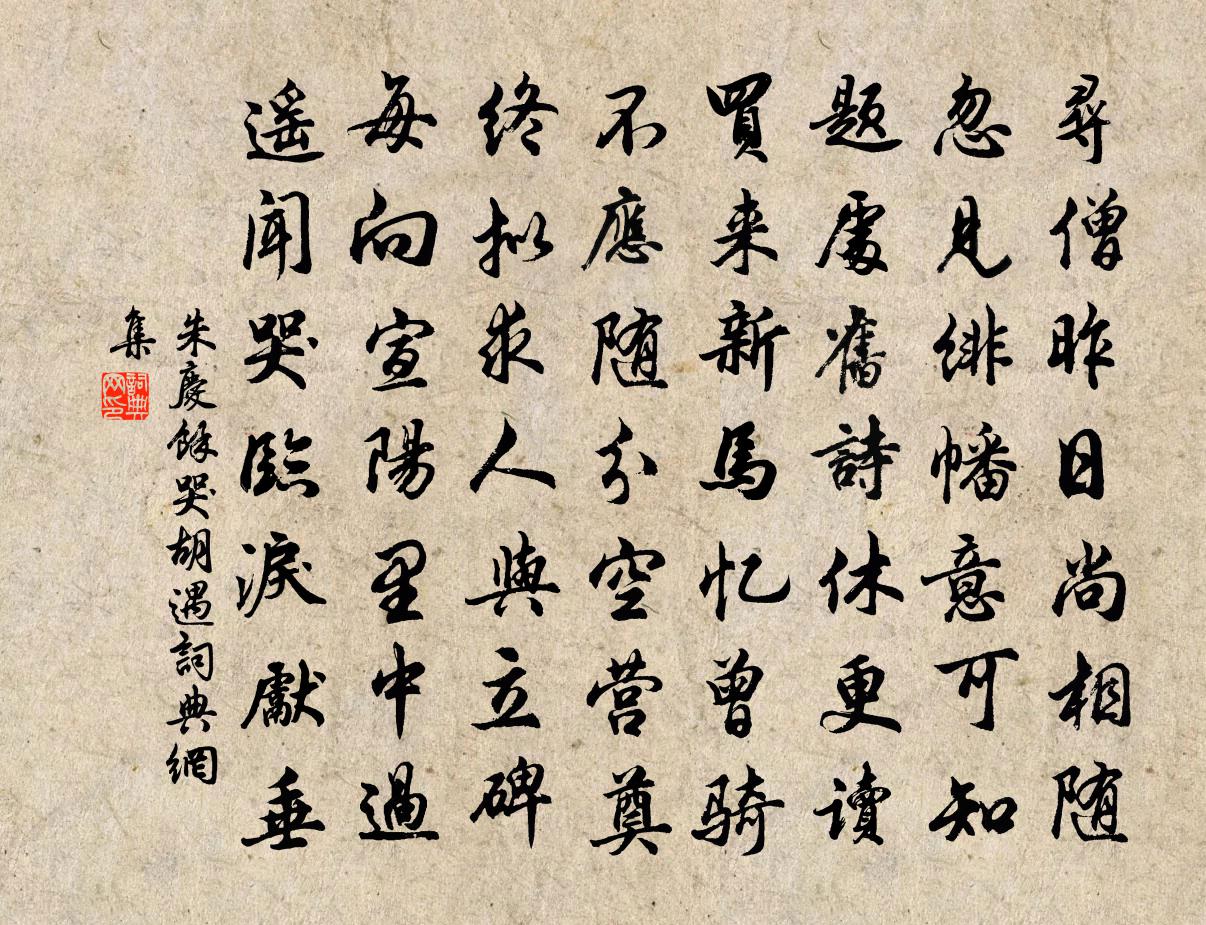 尋僧昨日尚相随
忽見緋幡意可知
题處舊詩休更讀
買来新馬忆曾骑
不應随分空营奠
终拟求人與立碑
每向宣陽里中過
遥闻哭臨淚獻垂
朱慶餘哭胡遇詞典網
集
詞典
网印